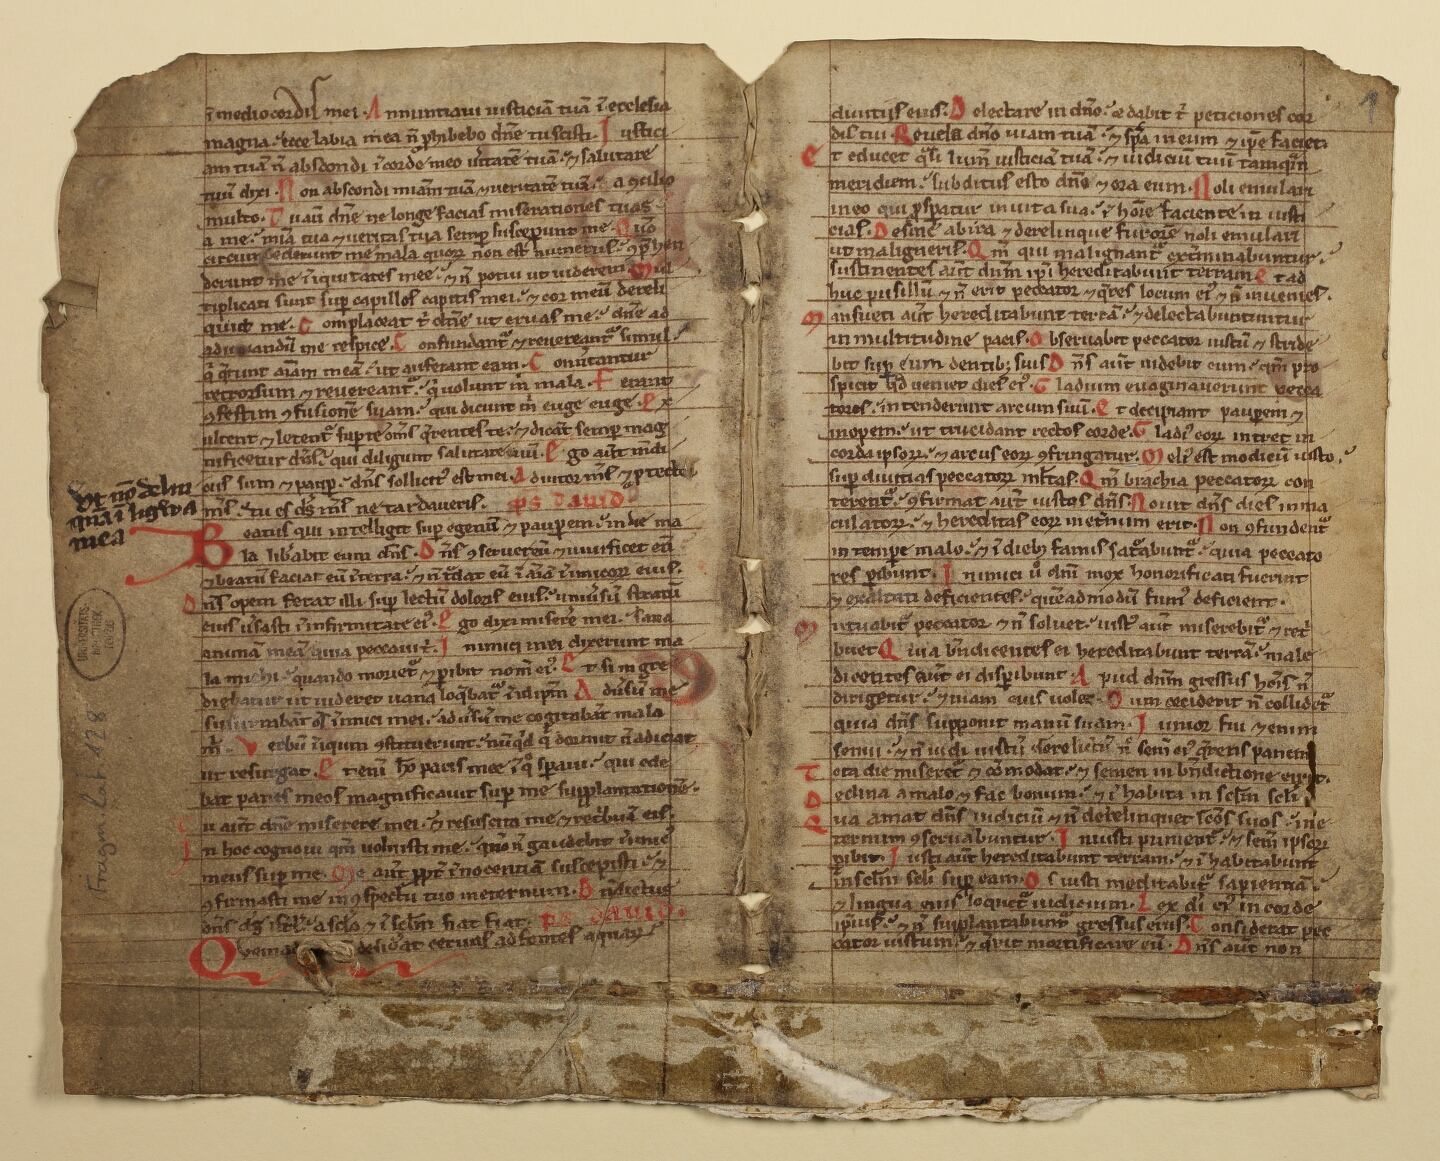 ī medio cordis mei. Annuntiaui iusticiā tuā ī ecclesia
magna. ecce labia mea ñ ꝓhibebo dñe tu scisti. Iustici
am tuā ñ abscondi ī corde meo ueritatē tuā. ⁊ salutare
tuū dixi. Non abscondi miām tuā ⁊ ueritatē tuā. a ꝯcilio
multo. Tu aū dñe ne longe facias miserationes tuas
a me. miā tua ⁊ ueritas tua semꝑ susceperunt me. Qm̄
circūdederunt me mala quoꝝ non est numerus. ꝯp̄hen
derunt me īiquitates mee. ⁊ ñ potui ut uiderem. Mul
tiplicati sunt suꝑ capillos capitis mei. ⁊ cor meū dereli
quit me. Complaceat t̄ dñe ut eruas me. dñe ad
adiuuandū me respice. Confundant᷑ ⁊ reuereant᷑ simul
q̄ q̄runt aīam meā. ut auferant eam. Conuertantur
retrorsum ⁊ reuereant᷑. q̄ uolunt m̄ mala. Ferant
ꝯfestim ꝯfusionē suam. qui dicunt m̄ euge euge. Ex
ultent ⁊ letent᷑ suꝑ te om̄s q̄rentes te. ⁊ dicāt semꝑ mag
nificetur dñs. qui diligunt salutare tuū. Ego aūt mēdi
cus sum ⁊ pauꝑ. dñs sollicit᷒ est mei. Adiutor m̄s ⁊ ꝓtector
m̄s. tu es ds̄ m̄s ne tardaueris. ps dauid
Beatus qui intelligit suꝑ egenū ⁊ pauꝑem. in die ma
la lib̄abit eum dñs. Dñs ꝯseruet eū ⁊ uiuificet eū
⁊ beatū faciat eū ī terra. ⁊ ñ t̄dat eū ī aīā īimicoꝝ eius.
Dñs opem ferat illi suꝑ lectū doloris eius. uniūsū stratū
eius ūsasti ī infirmitate ei᷒. Ego dixi miserē mei. sana
animā meā quia peccaui t̄. Inimici mei dixerunt ma
la michi. quando moriet᷑ ⁊ ꝑibit nom̄ ei᷒. Et si in gre
diebatur ut uideret uana loq̄bat᷑
susurrabāt oēs īimici mei. aduersū me cogitabāt mala
m̄. Verbū īiqum ꝯstituerunt. nūq̄d q̄ dormit ñ adiciat
ut resurgat. Et enī hō pacis mee ī q̊ sꝑaui. qui ede
bat panes meos magnificauit suꝑ me supplantationē.
Tu aūt dñe miserere mei. ⁊ resuscita me ⁊ retribuā eis.
In hoc cognoui qm̄ uoluisti me. qm̄ ñ gaudebit īimic᷒
meus suꝑ me. Me aūt ꝓpt̄ īnocentiā suscepisti. ⁊
ꝯfirmasti me in ꝯspectu tuo ineternum. Bn̄dictus
dñs ds̄ isrl̄. a sclō ⁊ ī sclm̄ fiat fiat. ps dauid.
Quemad desid̄at ceruus ad fontes aquaꝝ
ht̄ nō dclin
quā ī ligwa
mea
UNIVERSITÄTS-
BIBLIOTHEK
Fragm. lat. 428
1
diuitijs eius. Delectare in dño. ⁊ dabit t̄ peticiones cor
dis tui. Reuela dño uiam tuā. ⁊ sꝑa in eum ⁊ ip̄e faciet.
Et educet q̄si lum̄ iusticiā tuā. ⁊ iudiciū tuū tamq̄m
meridiem. subditus esto dño ⁊ ora eum. Noli emulari
in eo qui ꝓsꝑatur in uita sua. ī hoīe faciente in iusti
cias. Desine ab ira ⁊ derelinque furorē noli emulari
ut maligneris. Qm̄ qui malignant᷑ exterminabuntur.
sustinentes aūt dnm̄ ip̄i hereditabunt terram. Et ad
huc pusillū ⁊ ñ erit peccator ⁊ q̄res locum ei᷒ ⁊ ñ inuenies.
Mansueti aūt hereditabunt terrā. ⁊ delectabuntur
in multitudine pacis. Obseruabit peccator iustū. ⁊ stride
bit suꝑ eum dentib; suis. Dñs aūt iridebit eum. qm̄ pro
spicit qd̄ ueniet dies ei᷒. Gladium euaginauerunt pecca
tores. intenderunt arcum suū. Et decipiant pauꝑem ⁊
inopem. ut trucidant rectos corde. Gladi᷒ eoꝝ intret in
corda ipsoꝝ. ⁊ arcus eoꝝ ꝯfringatur. Meli᷒ est modicū iusto.
suꝑ diuitias peccatoꝝ ml̄tas. Qm̄ brachia peccatoꝝ con
terent᷑. ꝯfirmat aūt iustos dñs. Nouit dñs dies inma
culatoꝝ. ⁊ hereditas eoꝝ inet̄num erit. Non ꝯfundent᷑
in tempe malo. ⁊ ī dieb; famis sat᷑abunt᷑. quia peccato
res ꝑibunt. Inimici ū dnī mox honorificati fuerint
⁊ exaltati deficientes. quēadmodū fum᷒ deficient.
Mutuabit᷑ peccator ⁊ ñ soluet. iust᷒ aūt miserebit᷑ ⁊ ret̄
buet. Quia bn̄dicentes ei hereditabunt terrā. male
dicentes aūt ei disꝑibunt. Apud dnm̄ gressus hoīs
dirigetur. ⁊ uiam eius uolet. Cum ceciderit ñ collidet᷑
quia dñs supponit manū suam. Iunior fui ⁊ enim
senui. ⁊ ñ uidi iustū derelictū n̄ sem̄ ei᷒ q̄rens panem
Tota die miseret᷑ ⁊ cōmodat. ⁊ semen in bn̄dictione erit.
Declina a malo ⁊ fac bonum. ⁊ ī habita in sclm̄ scli.
Quia amat dñs iudiciū ⁊ ñ derelinquet scōs suos. ine
ternum ꝯseruabuntur. Iniusti punient᷑. ⁊ sem̄ ipsoꝝ
ꝑibit. Iusti aūt hereditabunt terram. ⁊ ī habitabunt
in sclm̄ scli suꝑ eam. Os iusti meditabit᷑ sapientiā.
⁊ lingua eius loquet᷑ iudicium. Lex di ei᷒ in corde
ip̄ius. ⁊ ñ supplantabunt᷑ gressus eius. Considerat pec
cator iustum. ⁊ q̄rit mortificare eū. Dñs aūt non